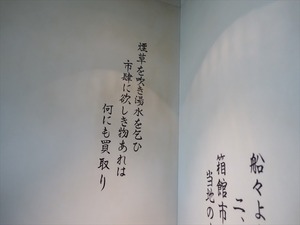 煙草を吹き湯水を乞ひ
市肆に欲しき物あれは
何にも買取り
船々よ
二、
箱館市
当地の